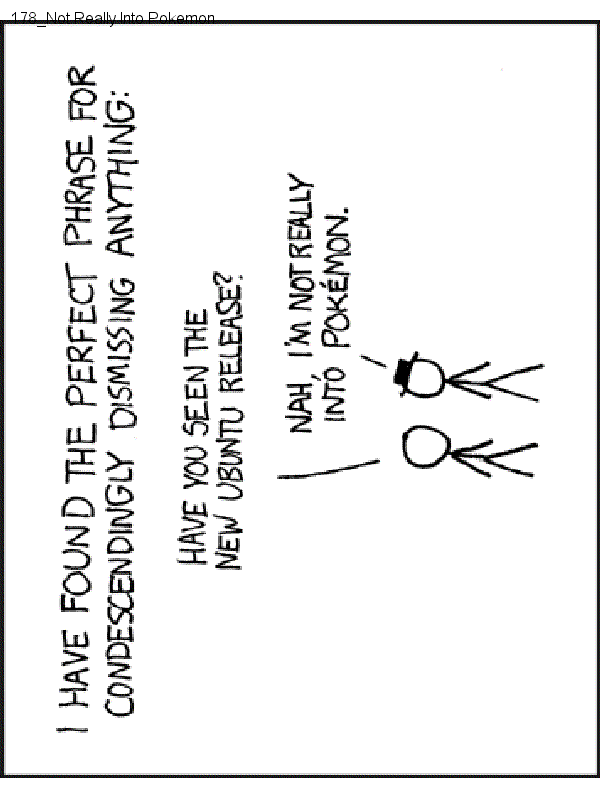 178_Not Really Into Pokemon
I HAVE FOUND THE PERFECT PHRASE FOR
CONDESCENDINGLY DISMISSING ANYTHING:
HAVE YOU SEEN THE
NEW UBUNTU RELEASE?
NAH, I'M NOT REALLY
INTO POKÉMON.